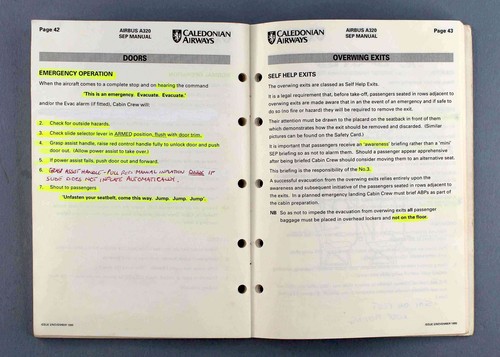 Page 42
AIRBUS A320
SEP MANUAL
CALEDONIAN
AIRWAYS
DOORS
EMERGENCY OPERATION
When the aircraft comes to a complete stop and on hearing the command
'This is an emergency. Evacuate. Evacuate.'
and/or the Evac alarm (if fitted), Cabin Crew will:
2. Check for outside hazards.
3. Check slide selector lever in ARMED position, flush with door trim.
4. Grasp assist handle, raise red control handle fully to unlock door and push
door out. (Allow power assist to take over.)
5. If power assist fails, push door out and forward.
6. GRASP ASSIST HANDLE - PULL RED MANUAL INFLATION HANDLE IF
SLIDE DOES NOT INFLATE AUTOMATICALLY.
7. Shout to passengers
'Unfasten your seatbelt, come this way. Jump. Jump. Jump'.
AIRBUS A320
SEP MANUAL
CALEDONIAN
AIRWAYS
Page 43
OVERWING EXITS
SELF HELP EXITS
The overwing exits are classed as Self Help Exits.
It is a legal requirement that, before take-off, passengers seated in rows adjacent to
overwing exits are made aware that in an the event of an emergency and if safe to
do so (no fire or hazard) they will be required to remove the exit.
Their attention must be drawn to the placard on the seatback in front of them
which demonstrates how the exit should be removed and discarded. (Similar
pictures can be found on the Safety Card.)
It is important that passengers receive an 'awareness' briefing rather than a 'mini'
SEP briefing so as not to alarm them. Should a passenger appear apprehensive
after being briefed Cabin Crew should consider moving them to an alternative seat.
This briefing is the responsibility of the No.3.
A successful evacuation from the overwing exits relies entirely upon the
awareness and subsequent initiative of the passengers seated in rows adjacent to
the exits. In a planned emergency landing Cabin Crew must brief ABPs as part of
the cabin preparation.
NB So as not to impede the evacuation from overwing exits all passenger
baggage must be placed in overhead lockers and not on the floor.